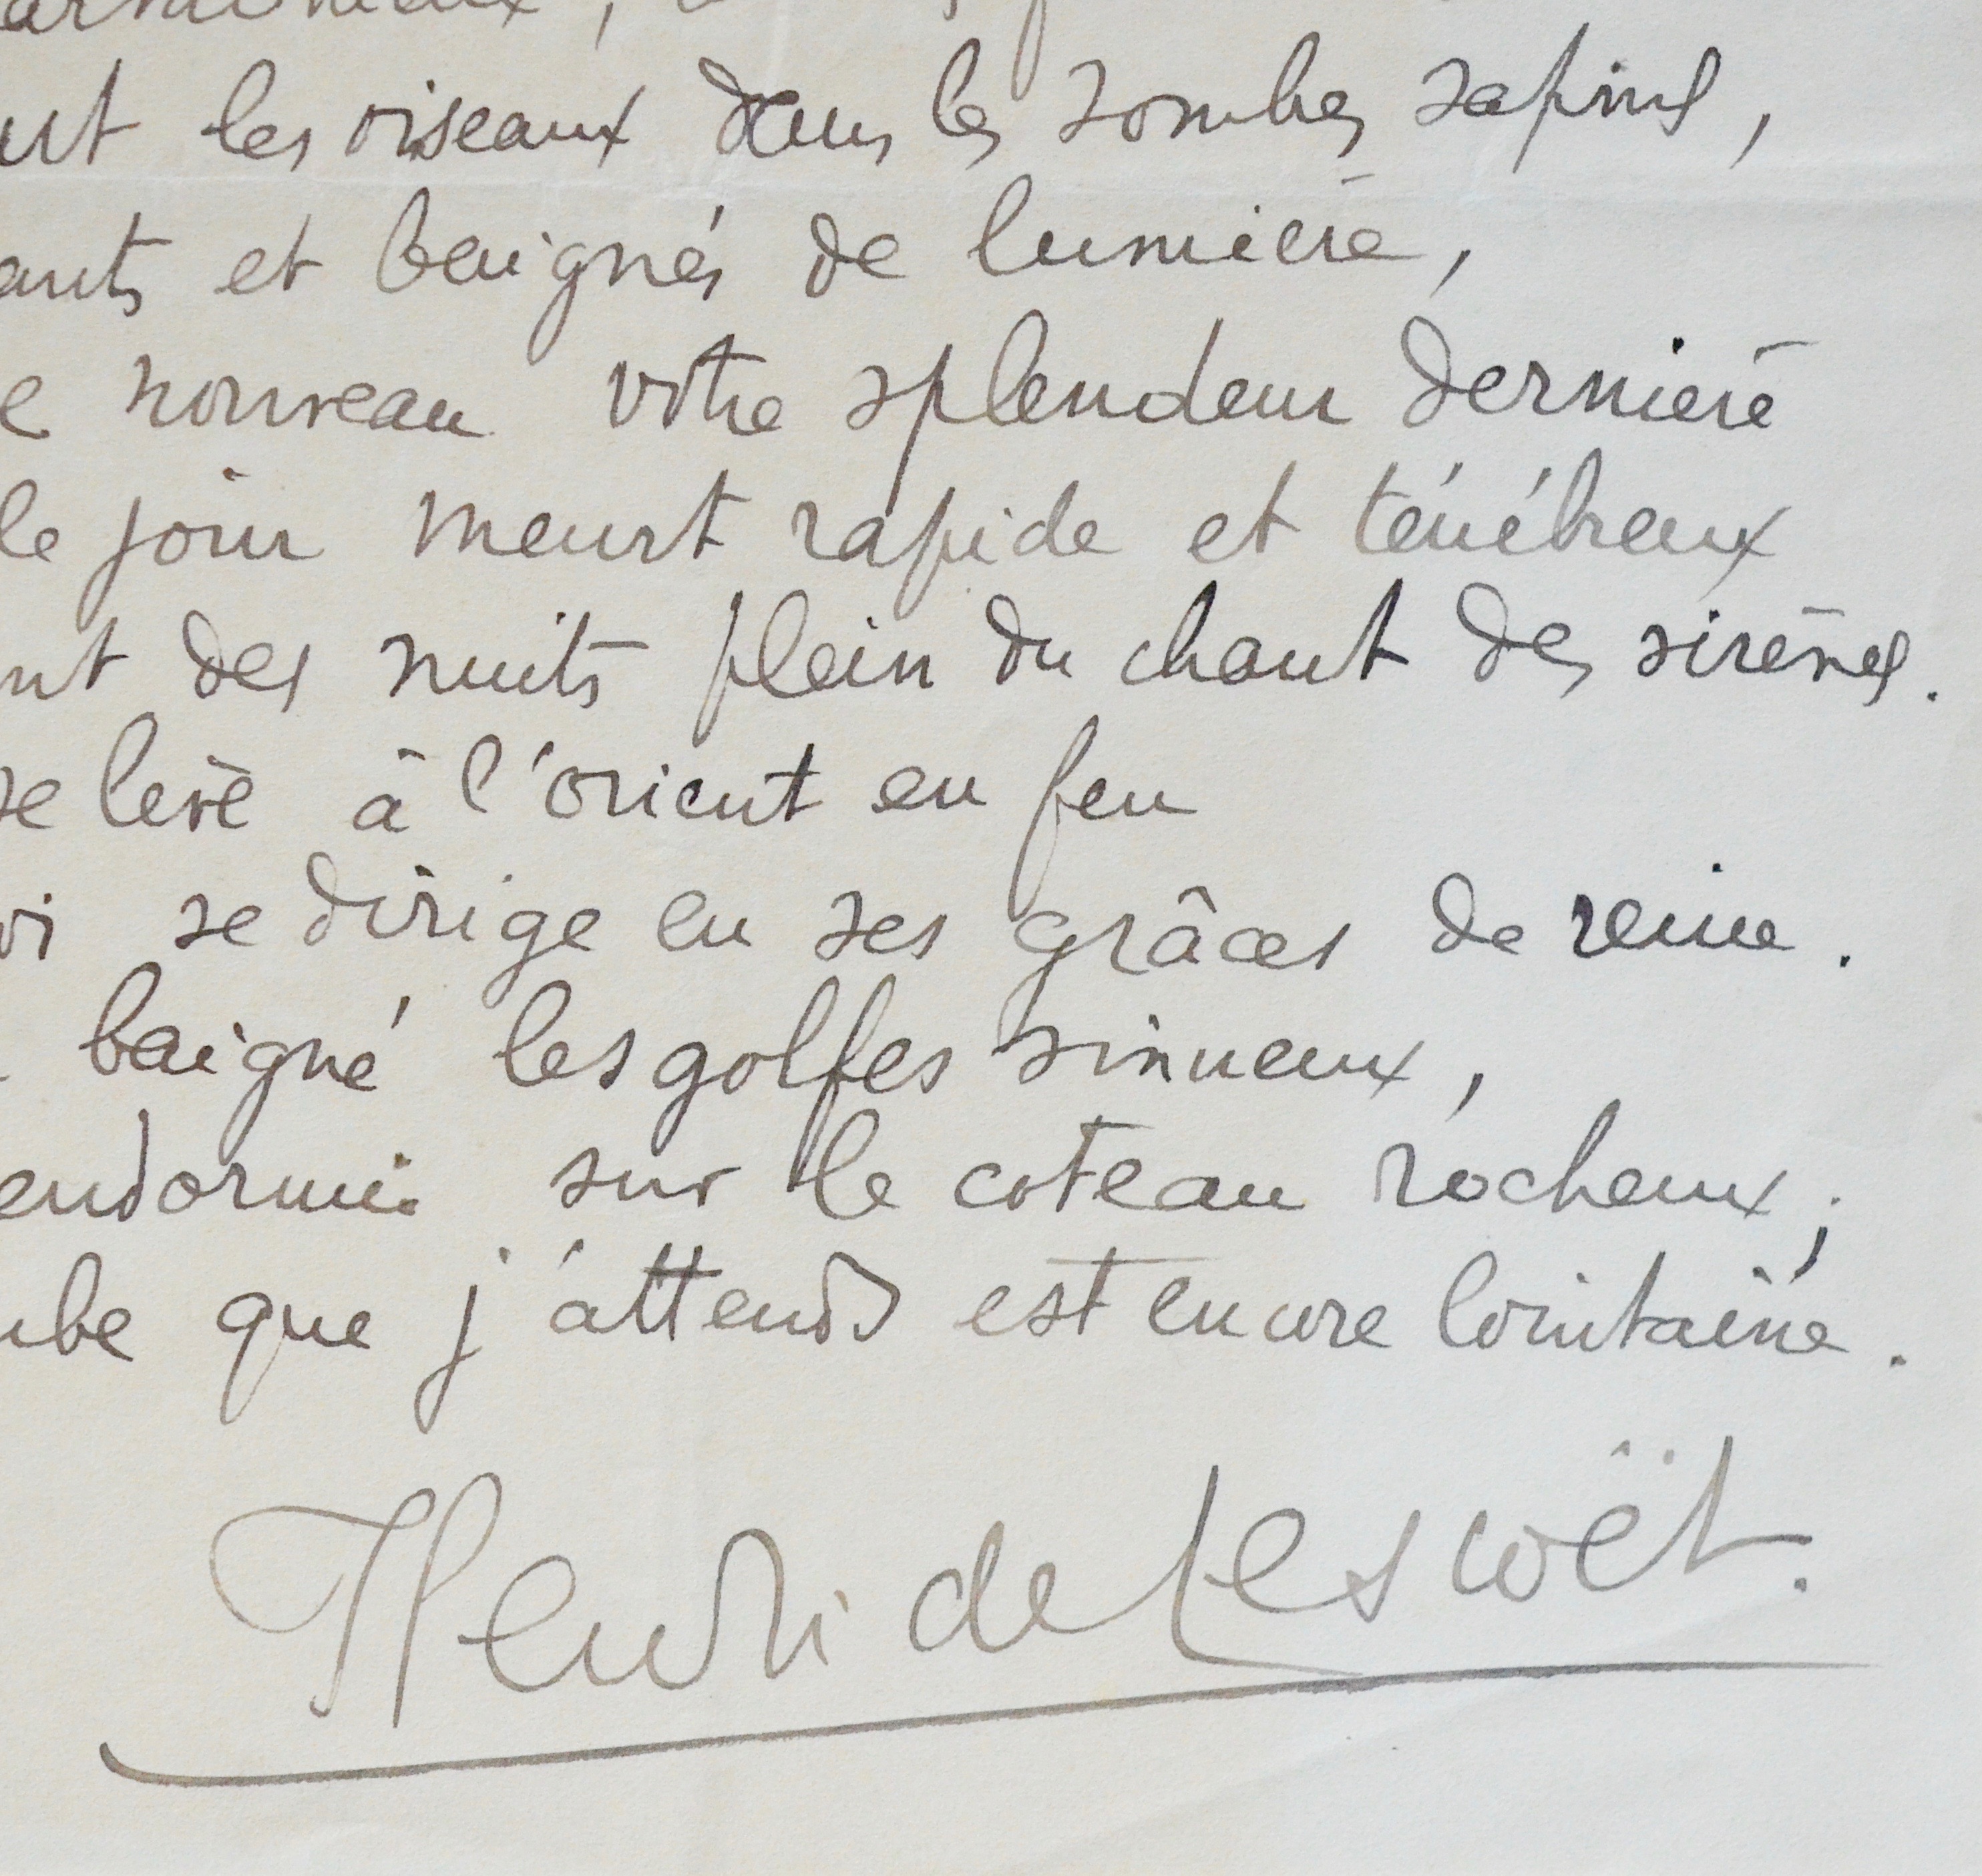 les oiseaux dans les sombres sapins,
et baignés de lumière,
nouveau votre splendeur dernière
le jour meurt rapide et ténébreux
des nuits plein du chant des sirènes.
se lève à l'orient en feu
se dirige en ses grâces de reine.
baigné les golfes sinueux,
endormi sur le coteau rocheux ;
que j'attends est encore lointaine.
Henri de Lescoët.